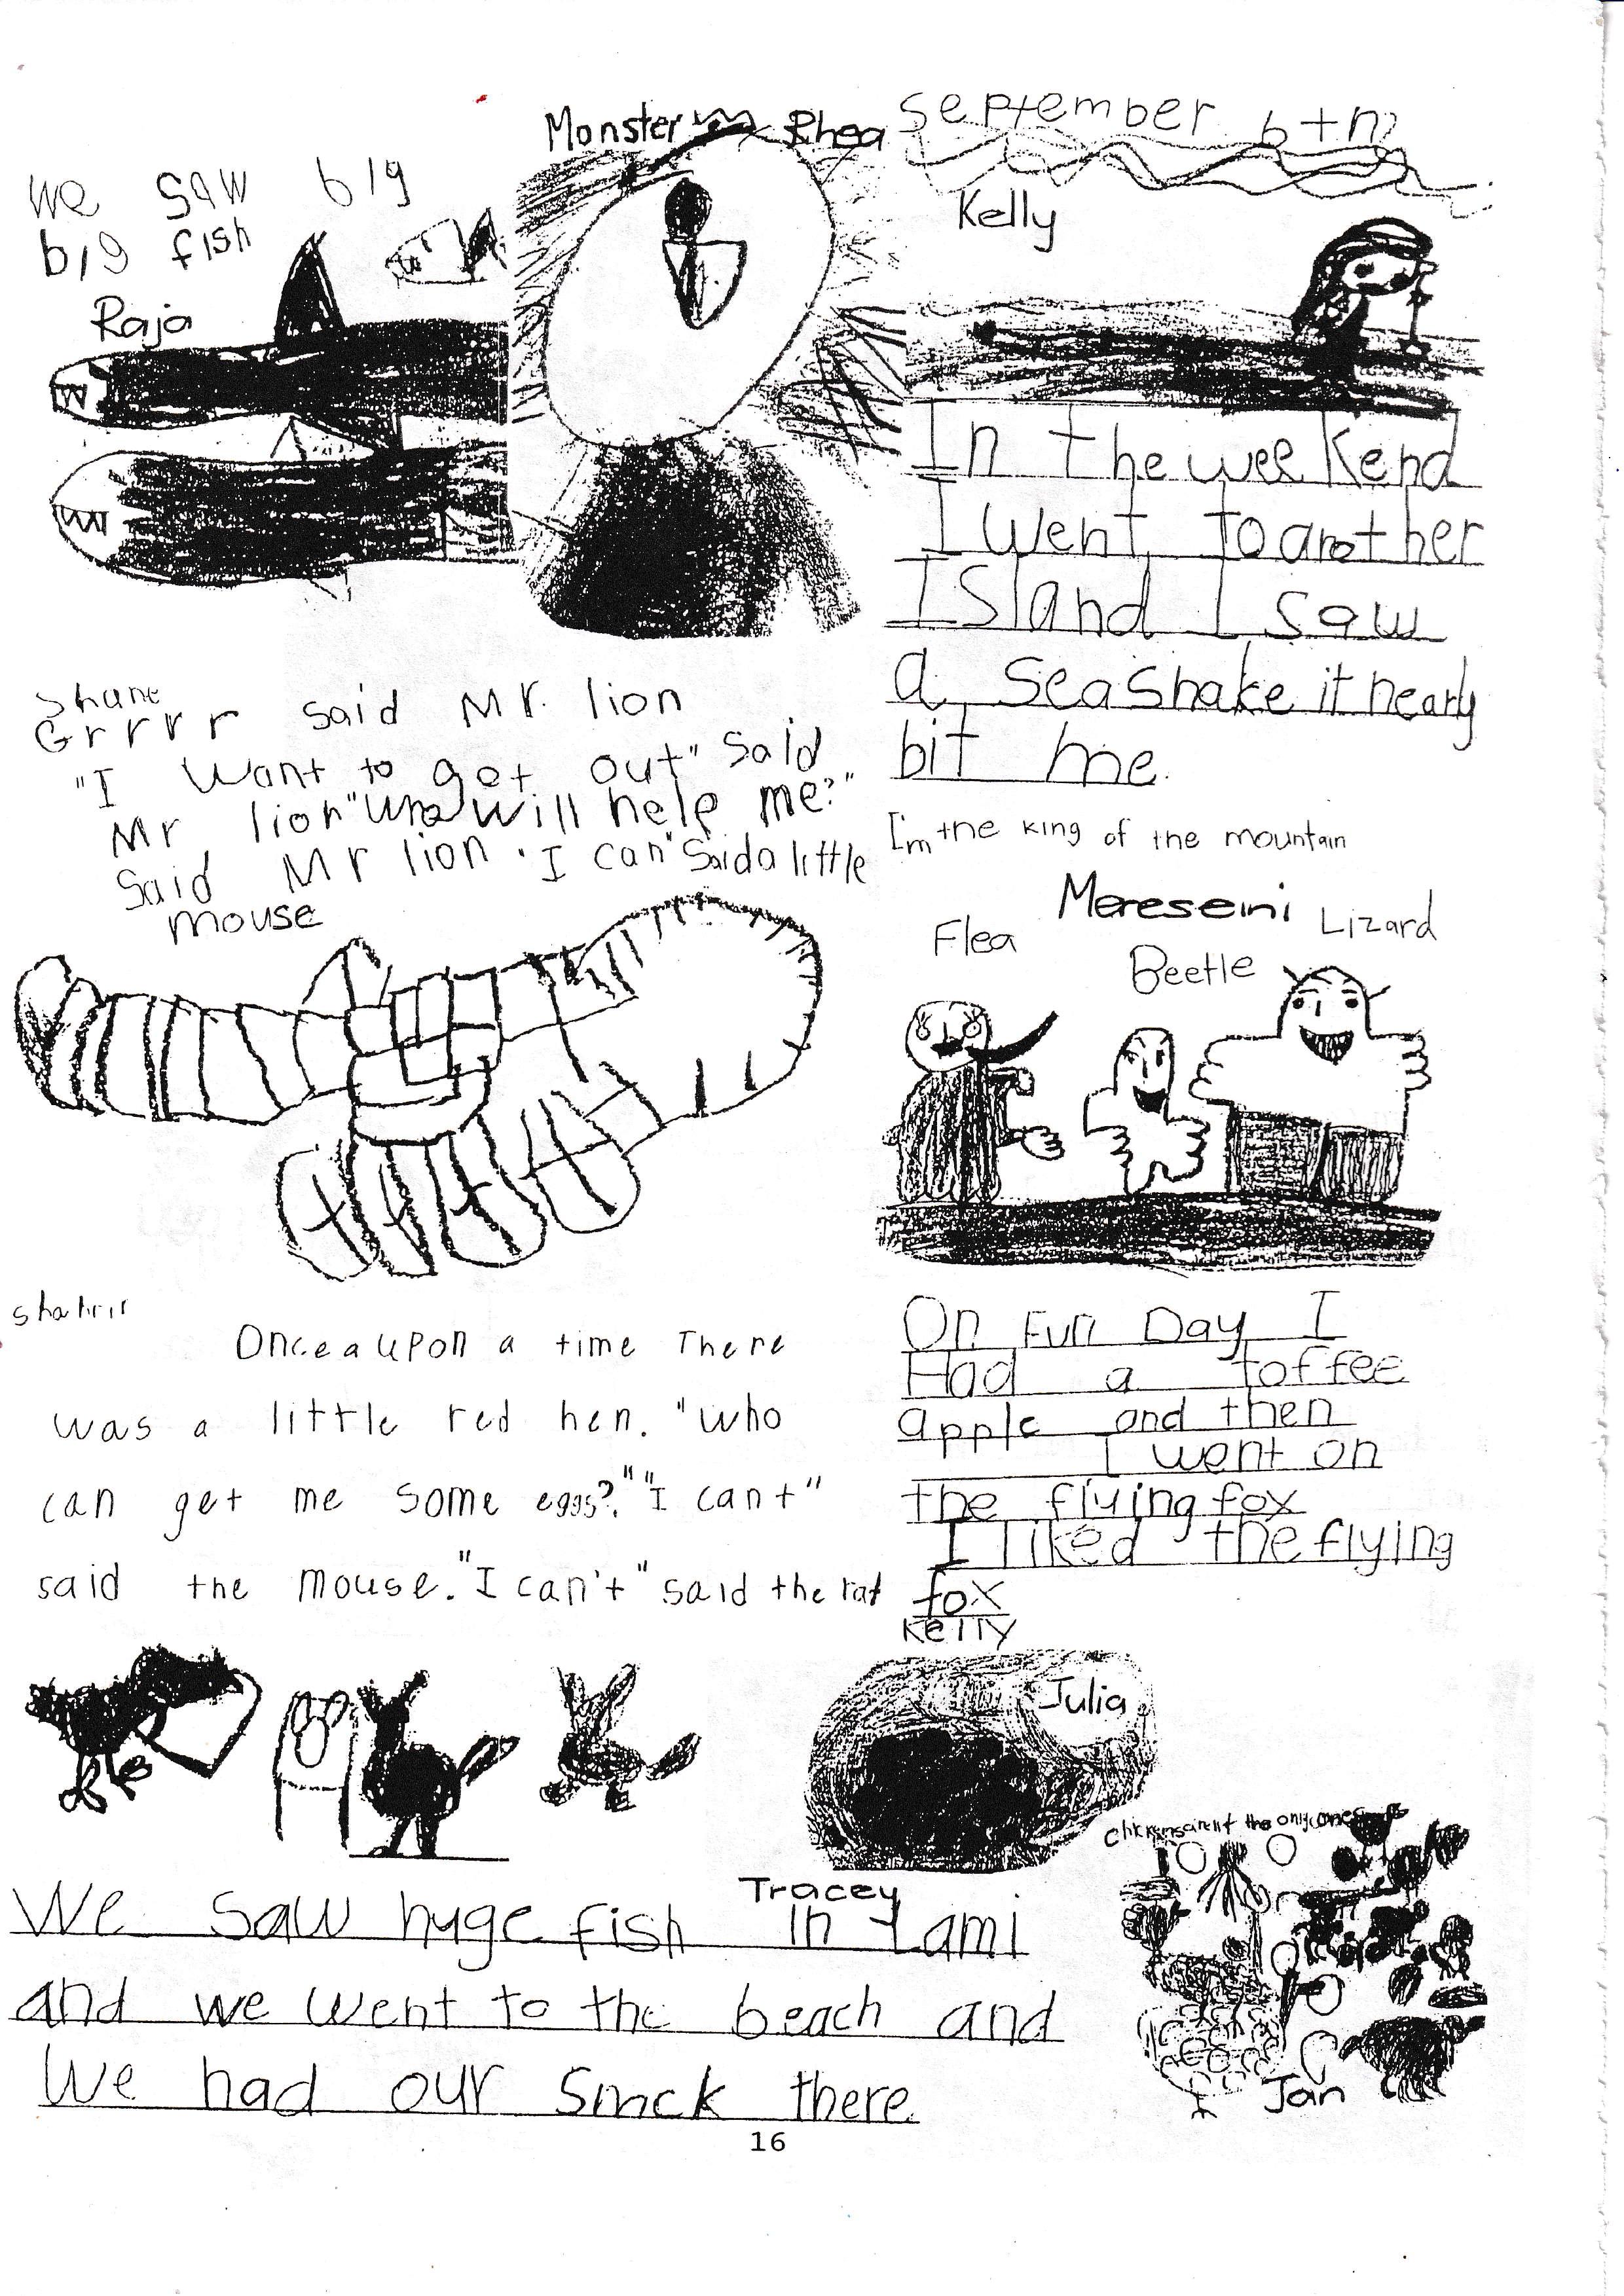 we saw big
big fish
Raja
Monster
Rhea
September 6th
Kelly
In the weekend
I went to another
Island I saw
a seasnake it nearly
bit me.
Shane
Grrrr said Mr. lion
"I want to get out" said
Mr lion "who will help me?"
said Mr lion. I can" said a little
mouse
I'm the king of the mountain
Mereseini
Flea
Beetle
Lizard
Shahrir
Oncea upon a time There
was a little red hen. "who
can get me some eggs?." "I cant"
said the mouse. "I can't" said the rat
On Fun Day I
Had a toffee
apple and then
I went on
the flying fox
I liked the flying
fox
Kelly
Julia
Chickens arent the only ones
Jan
Tracey
We saw huge fish in Lami
and we went to the beach and
We had our snack there.
16